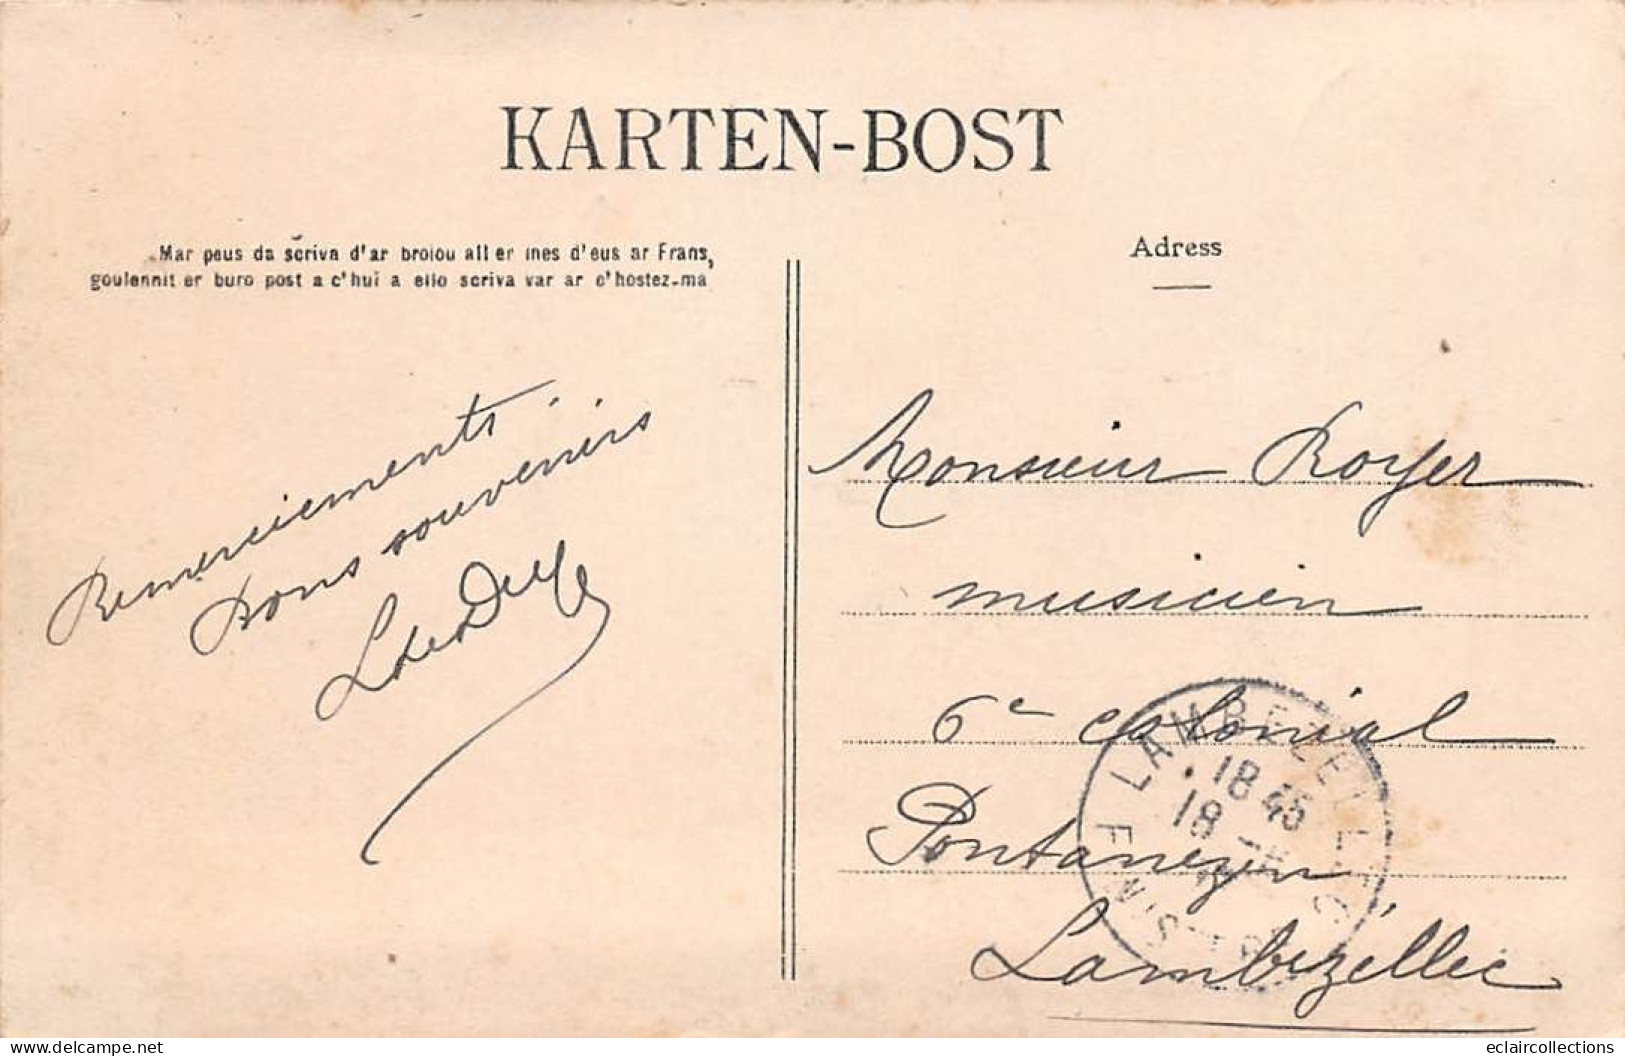 KARTEN-BOST
Mar peus da scriva d'ar broiou all er mes d'eus ar Frans,
goulennit er buro post a c'hui a ello scriva var ar c'hostez-ma
Adress
Remerciements
Bons souvenirs
Monsieur Royer
musicien
6e colonial
Pontanezen
Lambézellec
LAMBEZELLEC
18 45
18
FINISTERE
eclaircollections